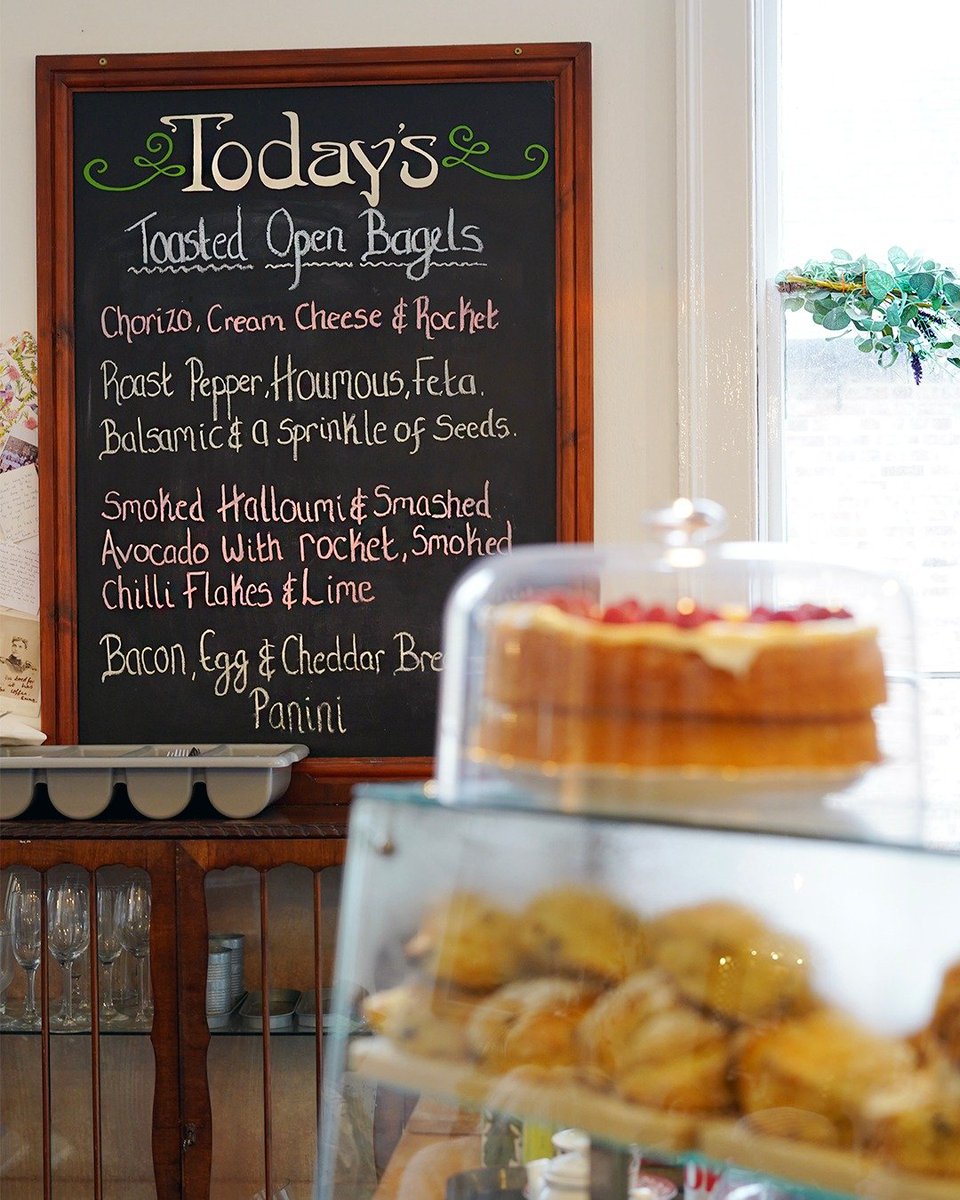 Today's
Toasted Open Bagels
Chorizo, Cream Cheese & Rocket
Roast Pepper, Houmous, Feta,
Balsamic & a sprinkle of Seeds.
Smoked Halloumi & Smashed
Avocado with rocket, Smoked
Chilli Flakes & Lime
Bacon, Egg & Cheddar Bre
Panini